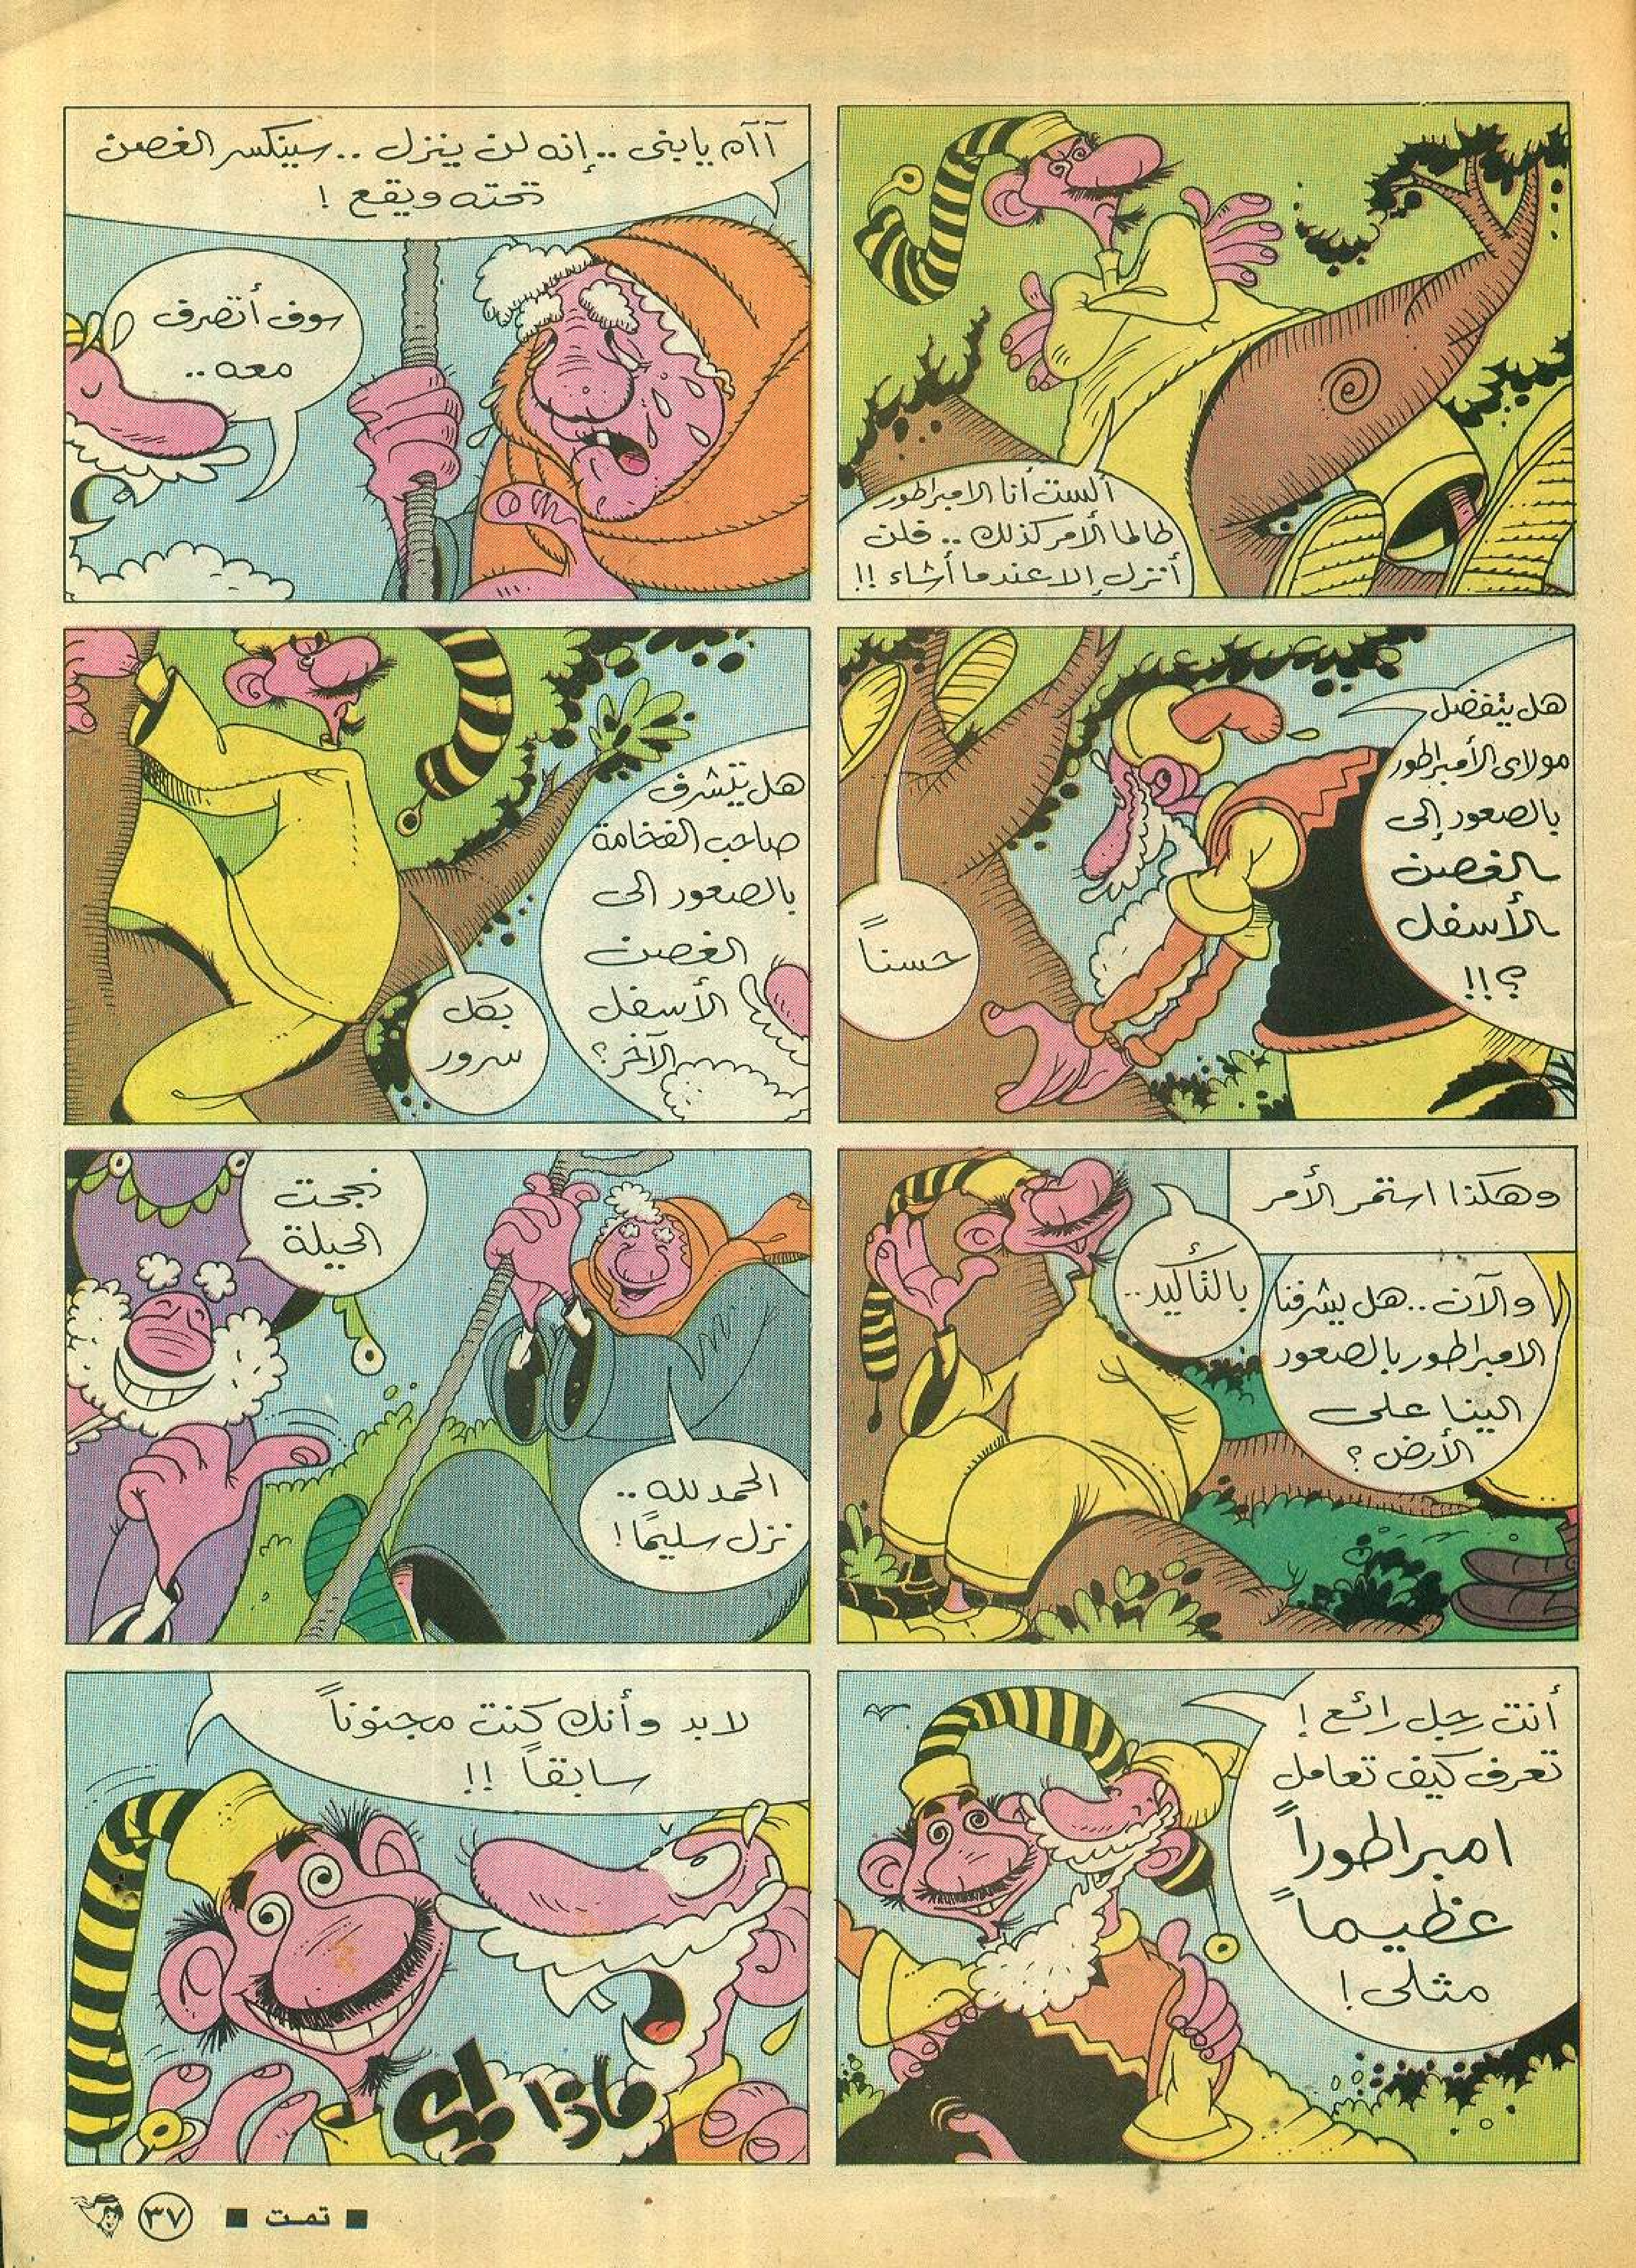 ألست أنا الامبراطور
طالما الأمر كذلك .. فلن
أنزل إلا عندما أشاء !!
آآه يابنى .. إنه لن ينزل .. سينكسر الغصن
تحته ويقع !
سوف أتصرف
معه ..
هل يتفضل
مولاى الأمبراطور
بالصعود إلى
الغصن
الأسفل
؟!!
حسناً
هل يتشرف
صاحب الفخامة
بالصعود الى
الغصن
الأسفل
الآخر؟
بكل
سرور
وهكذا استمر الأمر
والآن .. هل يشرفنا
الامبراطور بالصعود
الينا على
الأرض ؟
بالتأكيد ..
نجحت
الحيلة
الحمد لله ..
نزل سليماً !
أنت رجل رائع !
تعرف كيف تعامل
امبراطوراً
عظيماً
مثلى !
لابد وأنك كنت مجنوناً
سابقاً !!
ماذا !؟
■ تمت ■
٣٧